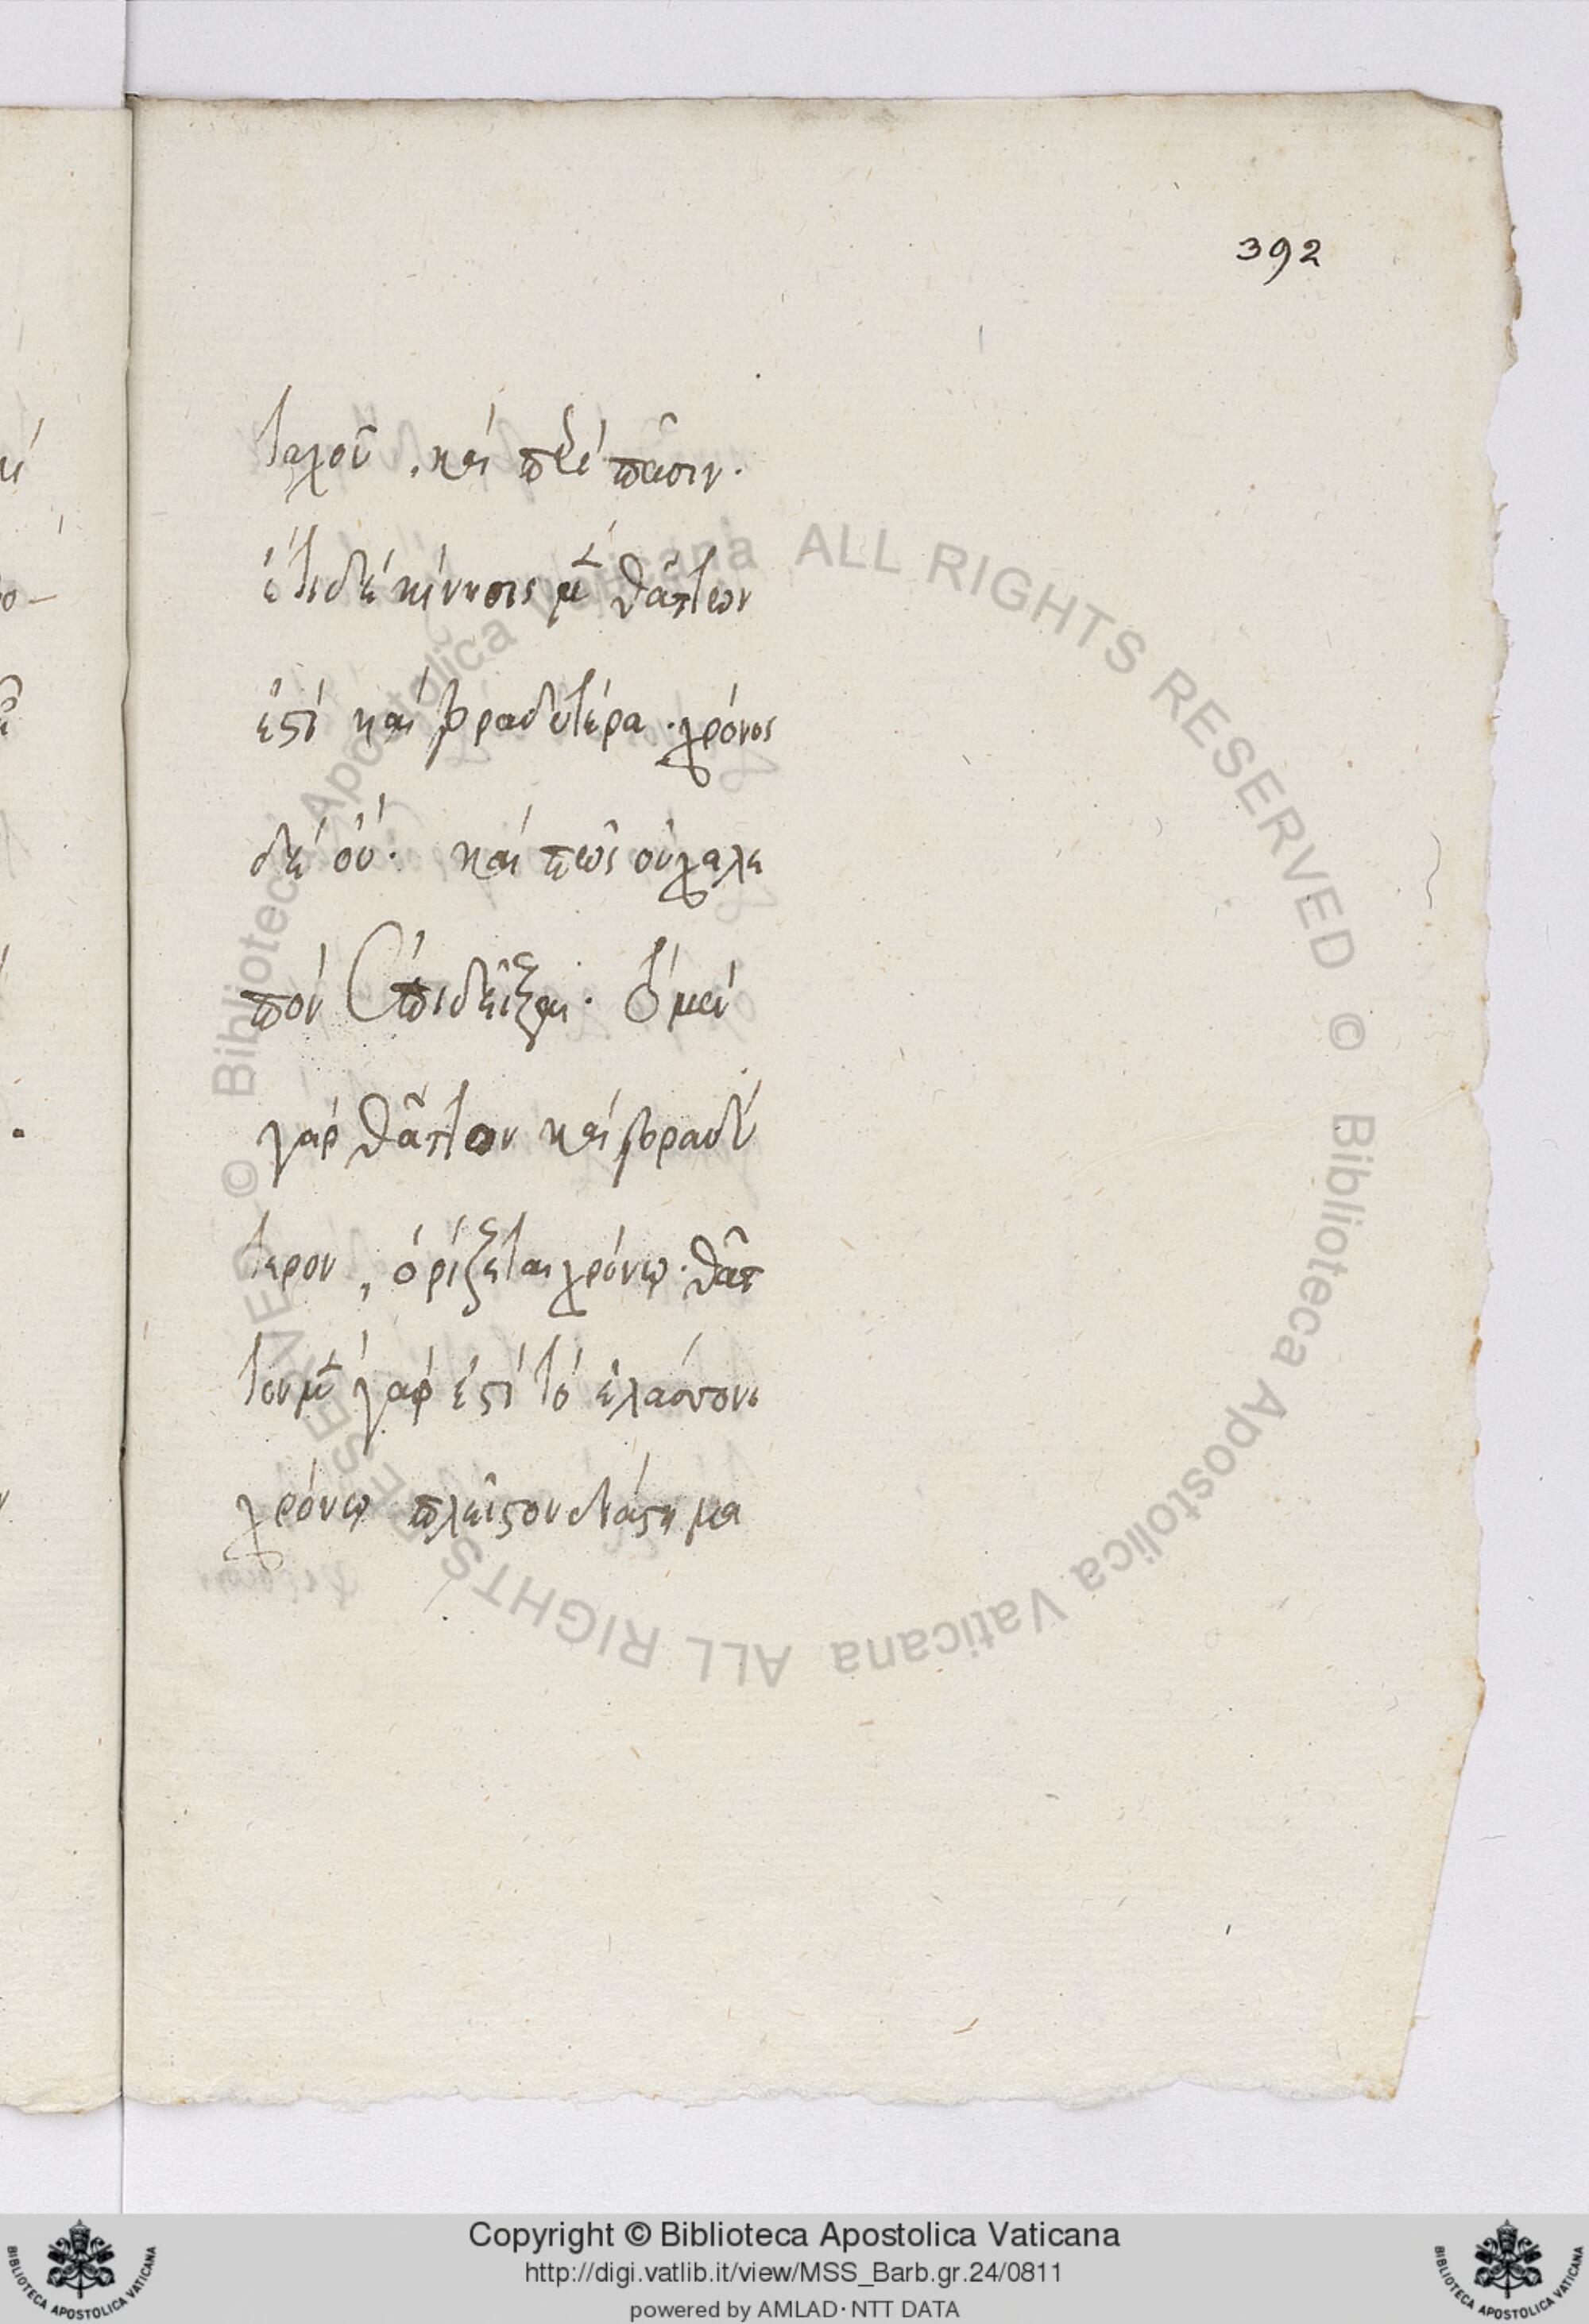 392
ταχοῦ, καὶ παρὰ πᾶσιν.
ἔτι δὲ κίνησις μὲν θάττων
ἐστὶ καὶ βραδυτέρα. χρόνος
δὲ οὔ. καὶ πῶς οὐ χαλε
πὸν ἐπιδεῖξαι. τὸ μὲν
γὰρ θᾶττον καὶ βραδύ
τερον, ὁρίζεται χρόνῳ. θᾶτ
τον μὲν γάρ ἐστι τὸ ἐλάσσονι
χρόνῳ πλεῖστον διάστημα
© Biblioteca Apostolica Vaticana ALL RIGHTS RESERVED © Biblioteca Apostolica Vaticana ALL RIGHTS RESERVED
Copyright © Biblioteca Apostolica Vaticana
http://digi.vatlib.it/view/MSS_Barb.gr.24/0811
powered by AMLAD·NTT DATA
BIBLIOTECA APOSTOLICA VATICANA
BIBLIOTECA APOSTOLICA VATICANA